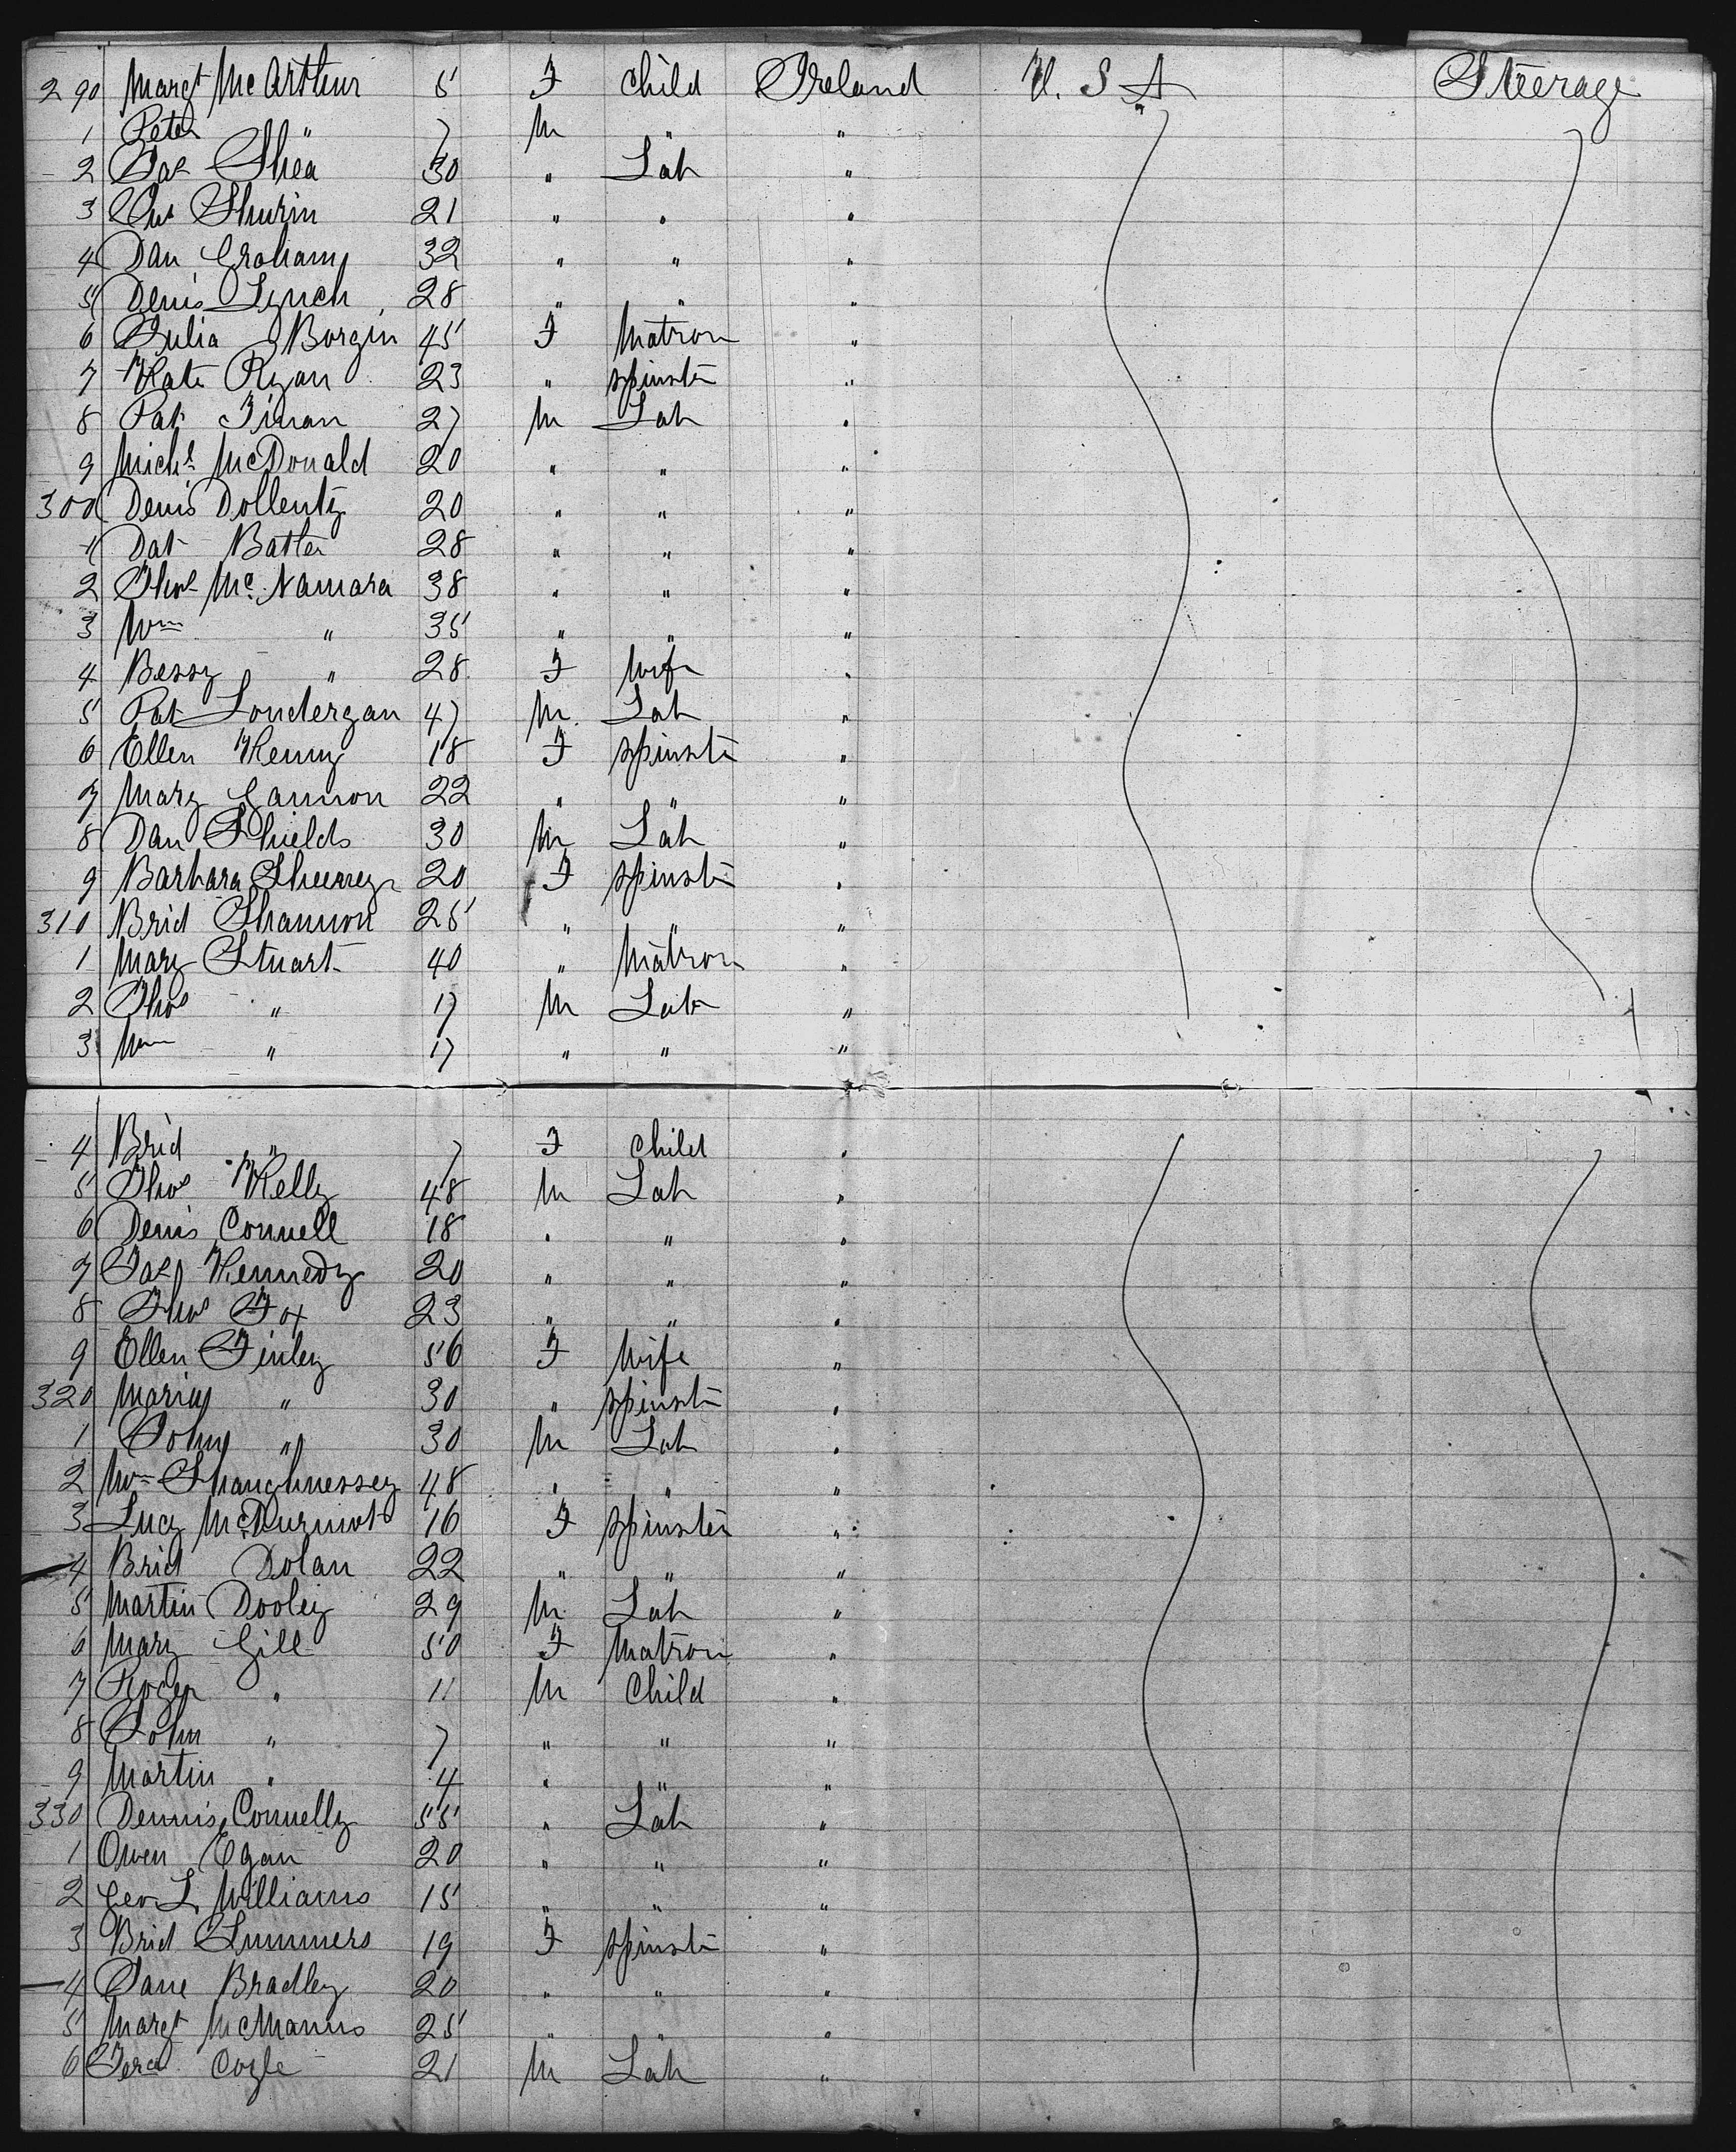 290 Margt McArthur 5 F Child Ireland U. S A Steerage
1 Peter " 7 M " "
2 Jas Shea 30 " Lab "
3 21 " " "
4 Dan Graham 32 " " "
5 Denis Lynch 28 " " "
6 Julia Borgin 45 F Matron "
7 Kate Ryan 23 " Spinstr "
8 Pat Finan 27 M Lab "
9 Michl McDonald 20 " " "
300 Denis 20 " " "
1 Pat 28 " " "
2 Thos McNamara 38 " " "
3 Wm " 35 " " "
4 Bessy " 28 F Wife "
5 Pat Londergan 47 M Lab "
6 Ellen Kenny 18 F Spinstr "
7 Mary Gannon 22 " " "
8 Dan Shields 30 M Lab "
9 Barbara 20 F Spinstr "
310 Brid Shannon 25 " " "
1 Mary Stuart 40 " Matron "
2 Thos " 17 M Lab "
3 Wm " 17 " " "
4 Brid " 7 F Child "
5 Thos Kelly 48 M Lab "
6 Denis Connell 18 " " "
7 Jas Kennedy 20 " " "
8 Thos Fox 23 " " "
9 Ellen Finley 56 F Wife "
320 Maria " 30 " Spinstr "
1 John " 30 M Lab "
2 Wm Shaughnessey 48 " " "
3 Lucy McDurmot 16 F Spinster "
4 Brid Dolan 22 " " "
5 Martin Dooley 29 M Lab "
6 Mary Gill 50 F Matron "
7 Roger " 11 M Child "
8 John " 7 " " "
9 Martin " 4 " " "
330 Dennis Connelly 55 " Lab "
1 Owen Egan 20 " " "
2 Geo L Williams 15 " " "
3 Brid Summers 19 F Spinstr "
4 Jane Bradley 20 " " "
5 Margt McManus 25 " " "
6 Ferd Coyle 21 M Lab "